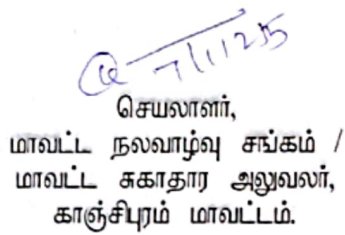 7/11/25
செயலாளர்,
மாவட்ட நலவாழ்வு சங்கம் /
மாவட்ட சுகாதார அலுவலர்,
காஞ்சிபுரம் மாவட்டம்.